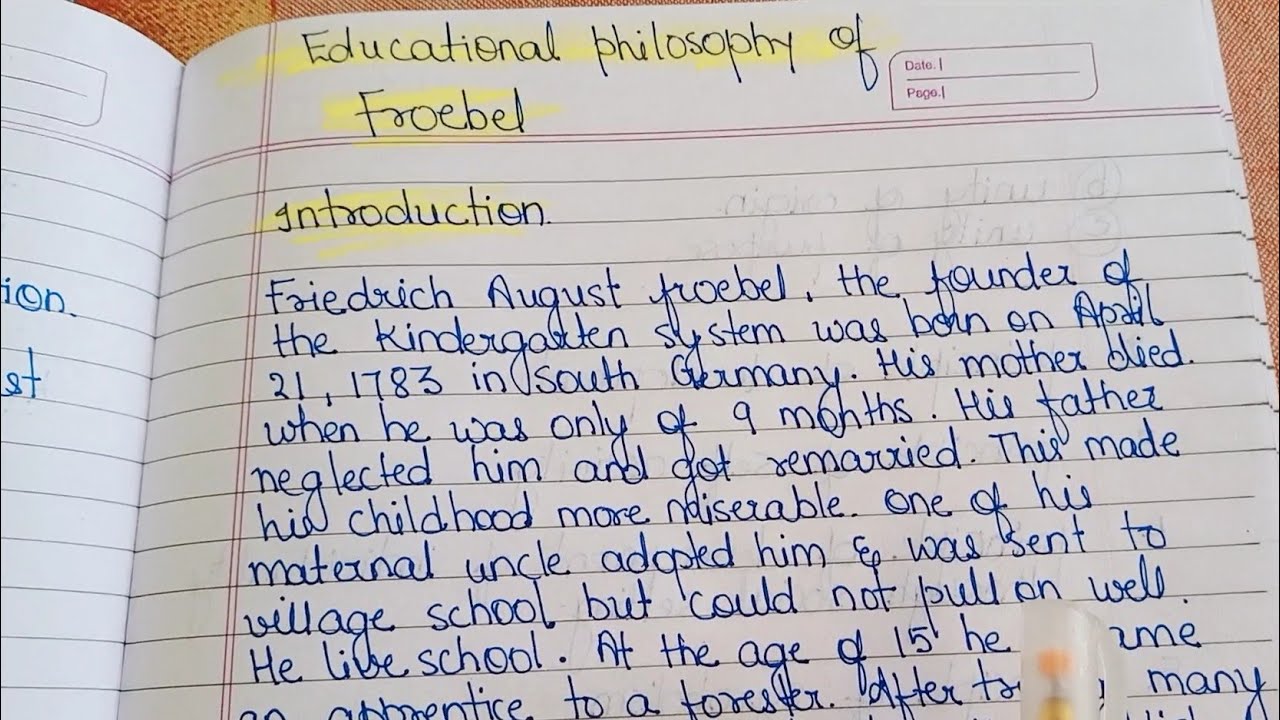 Educational philosophy of
Froebel
Date.
Page.
Introduction.
Friedrich August froebel, the founder of
the kindergarten system was born on April
21, 1783 in south Germany. His mother died
when he was only of 9 months. His father
neglected him and got remarried. This made
his childhood more miserable. One of his
maternal uncle adopted him & was sent to
village school but could not pull on well.
He live school. At the age of 15 he
an apprentice to a forester. After many
ion.
st
(b) unity of origin.
(c) unity of